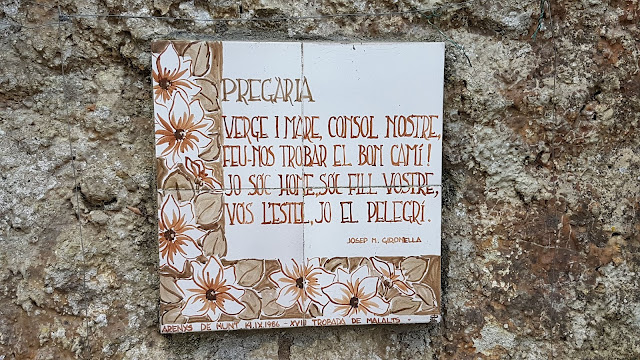 PREGÀRIA
VERGE I MARE, CONSOL NOSTRE,
FEU-NOS TROBAR EL BON CAMÍ!
JO SÓC HOME, SÓC FILL VOSTRE,
VÓS L'ESTEL, JO EL PELEGRÍ.
JOSEP M. GIRONELLA
ARENYS DE MUNT 14.IX.1986 - XVIII TROBADA DE MALALTS